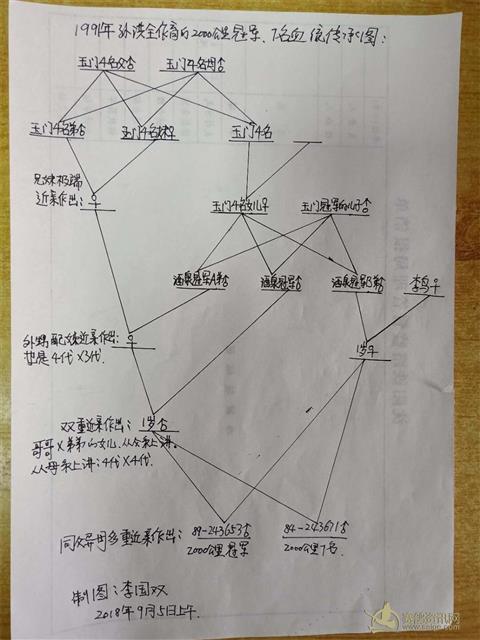 1991年孙洪全作育的2000公里冠军、7名血统传承图:
玉门4名父♂ 玉门4名母♀
玉门4名弟♂ 玉门4名妹♀ 玉门4名
兄妹极端
近亲作出: ♀
玉门4名女儿♀ 玉门冠军的儿子♂
酒泉冠军A弟♂ 酒泉冠军♂ 酒泉冠军B弟♂ 李鸟♀
♀
也是4代X3代
1岁♀
双重近亲作出: 1岁♂
哥哥X弟弟的女儿.从父亲上讲。
从母亲上讲:4代X4代.
同父异母多重近亲作出: 89-243653♂ 84-243671♂
2000公里冠军 2000公里7名
制图:李国双
2018年9月5日上午